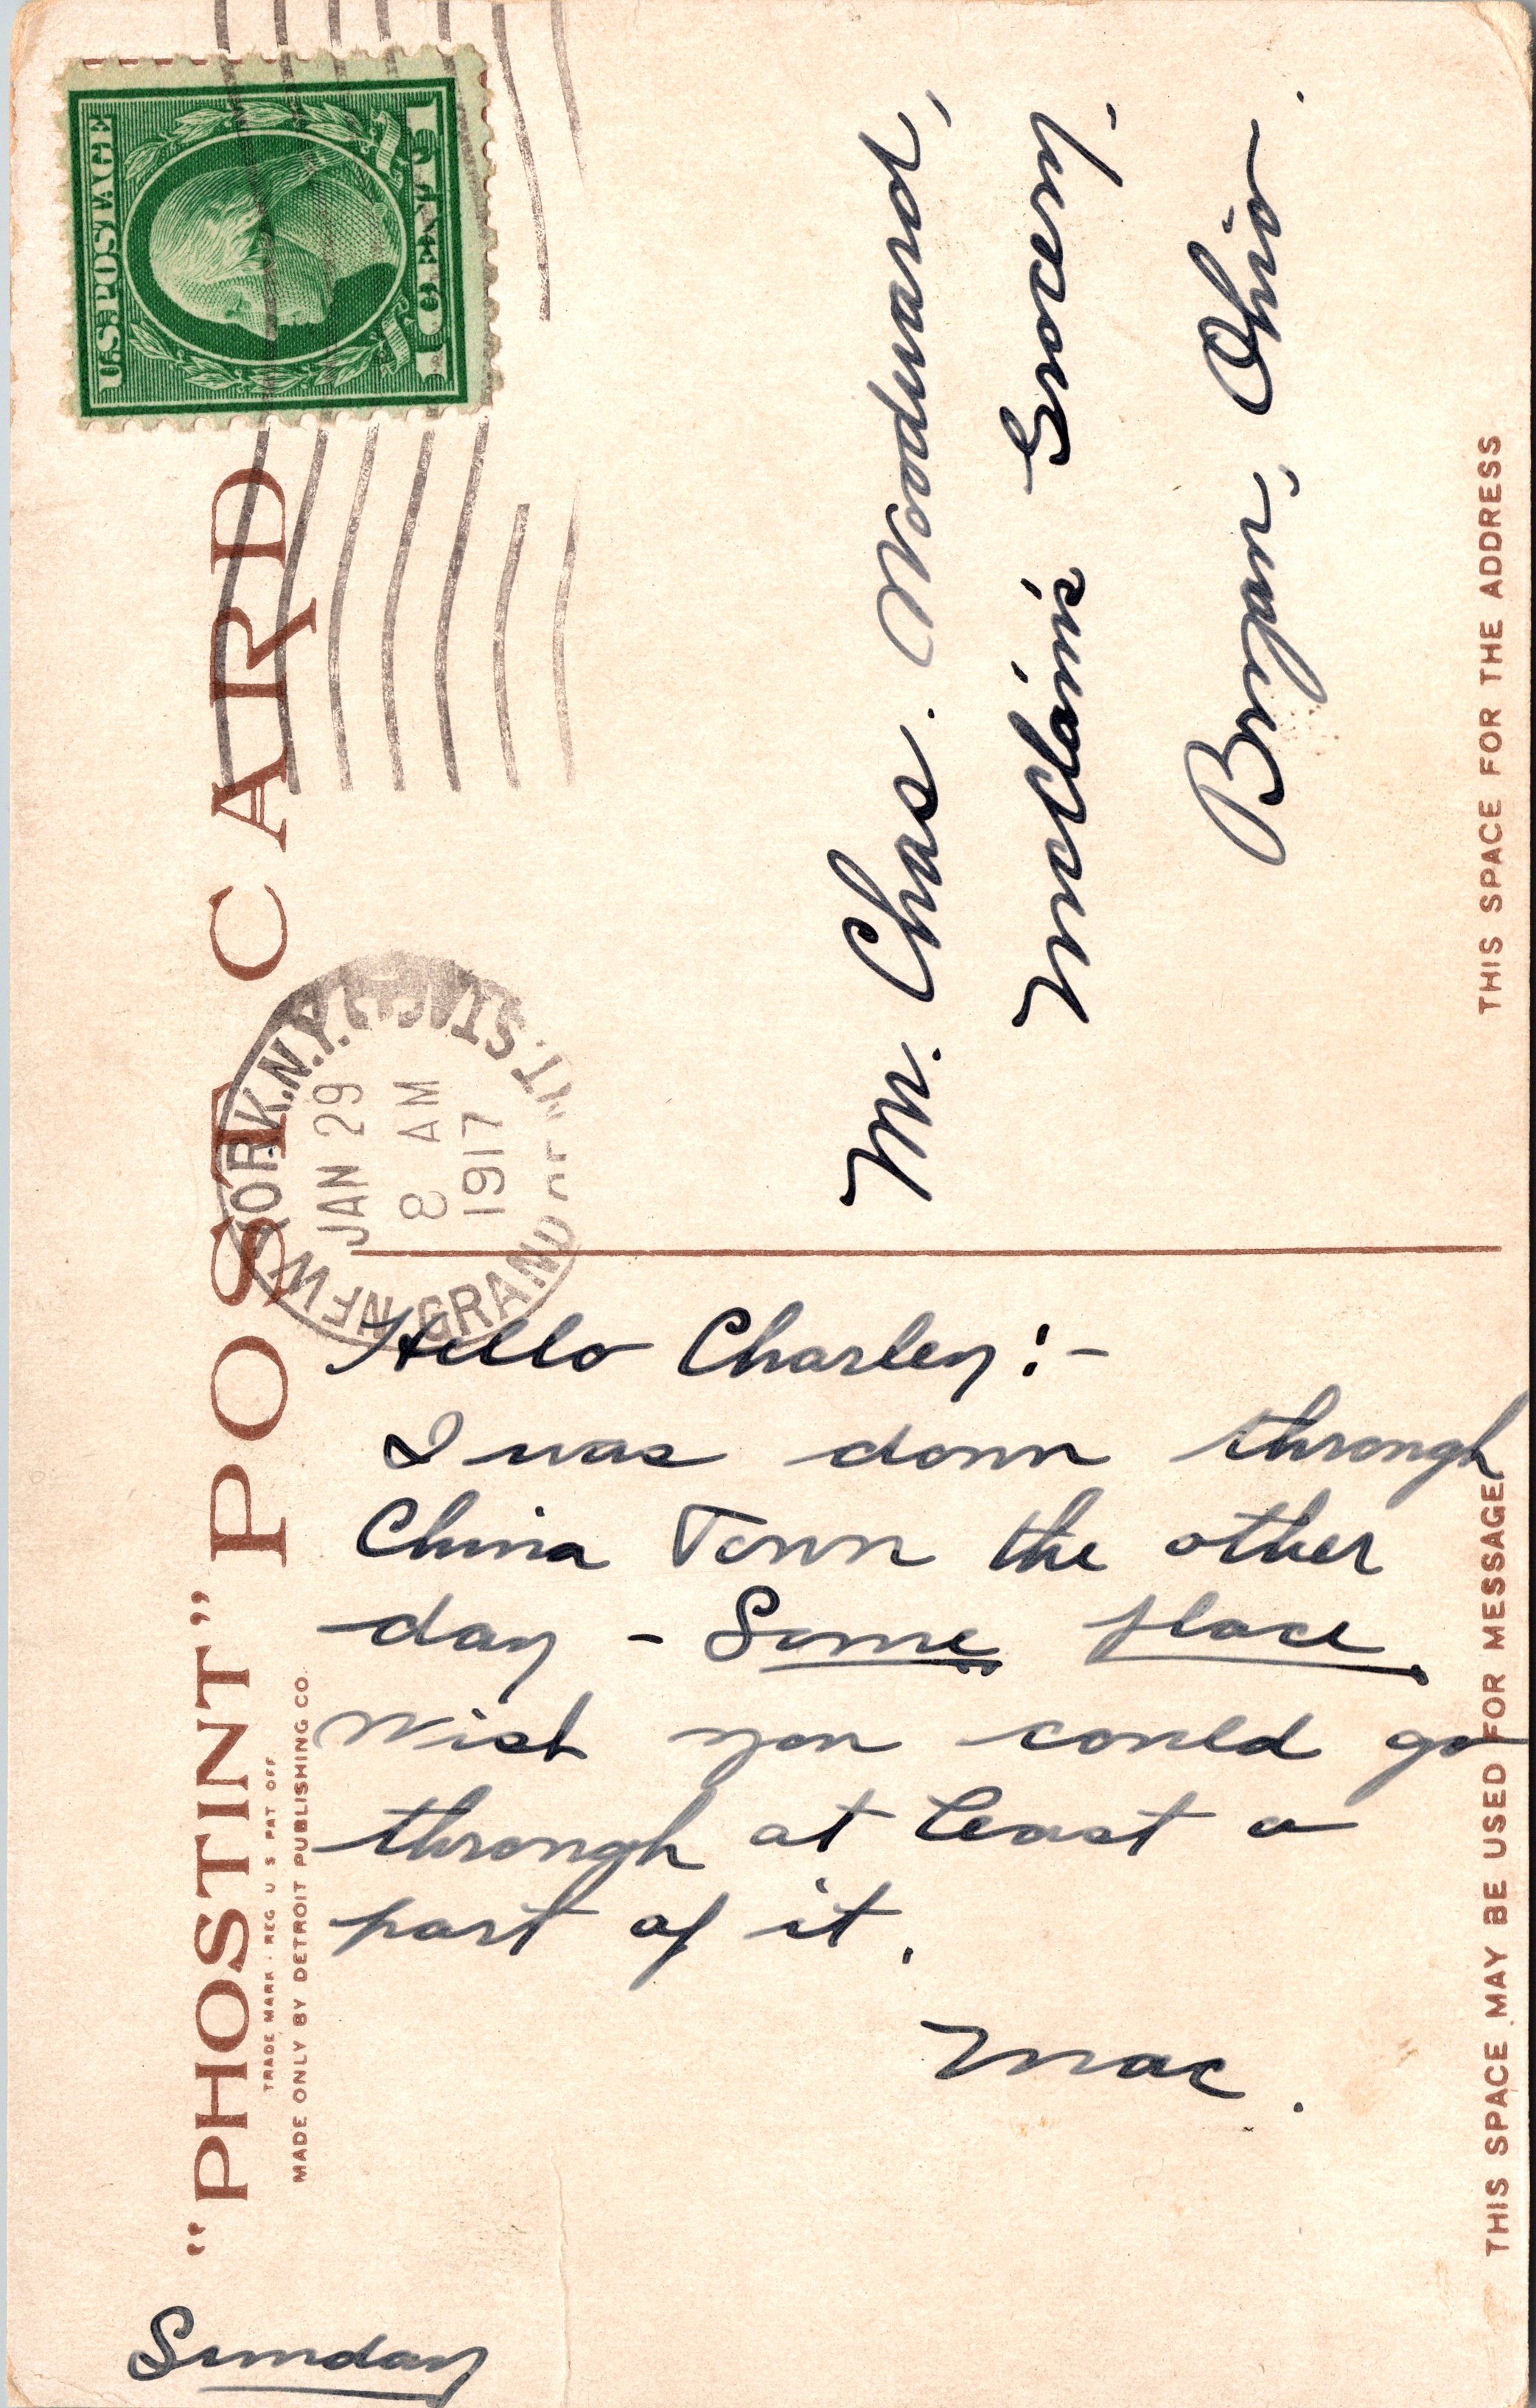 "PHOSTINT" POST CARD
TRADE MARK · REG U S PAT OFF
MADE ONLY BY DETROIT PUBLISHING CO.
U.S. POSTAGE
1 CENT 1
NEW YORK, N.Y.
GRAND
JAN 29
8 AM
1917
Hello Charley:-
I was down through
China Town the other
day - Some place
Wish you could go
through at least a
part of it.
Mac.
Sunday
Mr. Chas. Woodward,
McClain's Grocery.
Bryan, Ohio.
THIS SPACE MAY BE USED FOR MESSAGE
THIS SPACE FOR THE ADDRESS